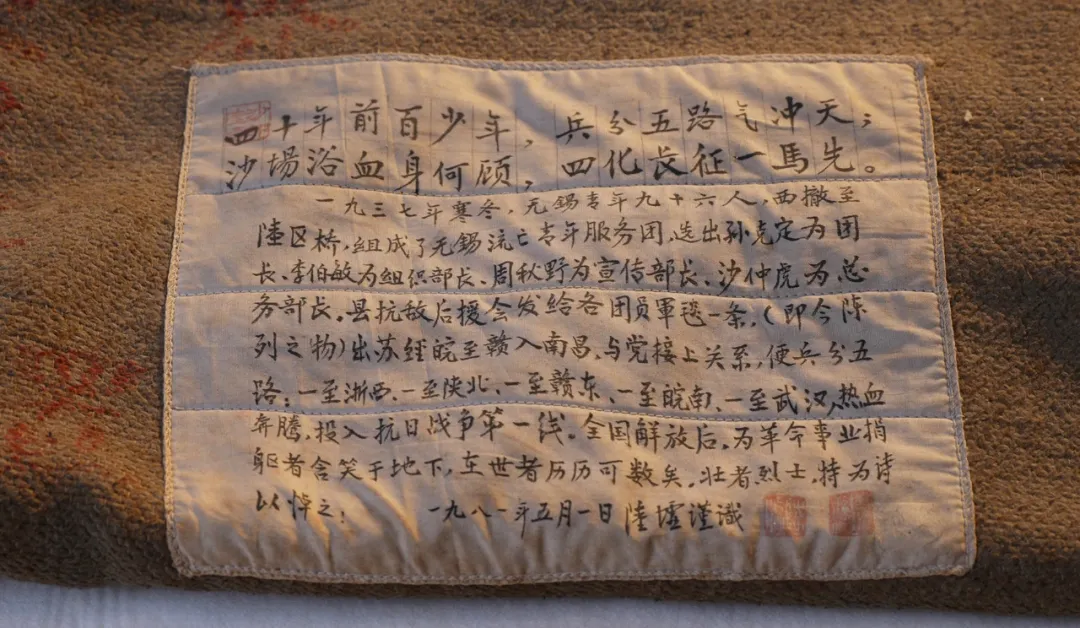 四十年前百少年，兵分五路气冲天；
沙場浴血身何顾，四化长征一馬先。
一九三七年寒冬，无锡青年九十六人，西撤至
陸区桥，组成了无锡流亡青年服务团，选出孙克定为团
长、李伯敏为组织部长、周秋野为宣传部长、沙仲虎为总
务部长。县抗敌后援会发给各团员軍毯一条，(即今陈
列之物)出苏经皖至赣入南昌，与党接上关系，便兵分五
路：一至浙西、一至陕北、一至赣东、一至皖南、一至武汉，热血
奔腾，投入抗日战争第一线。全国解放后，为革命事业捐
躯者含笑于地下，在世者历历可数矣。壮者烈士，特为诗
以悼之：　一九八一年五月一日陸墟谨識